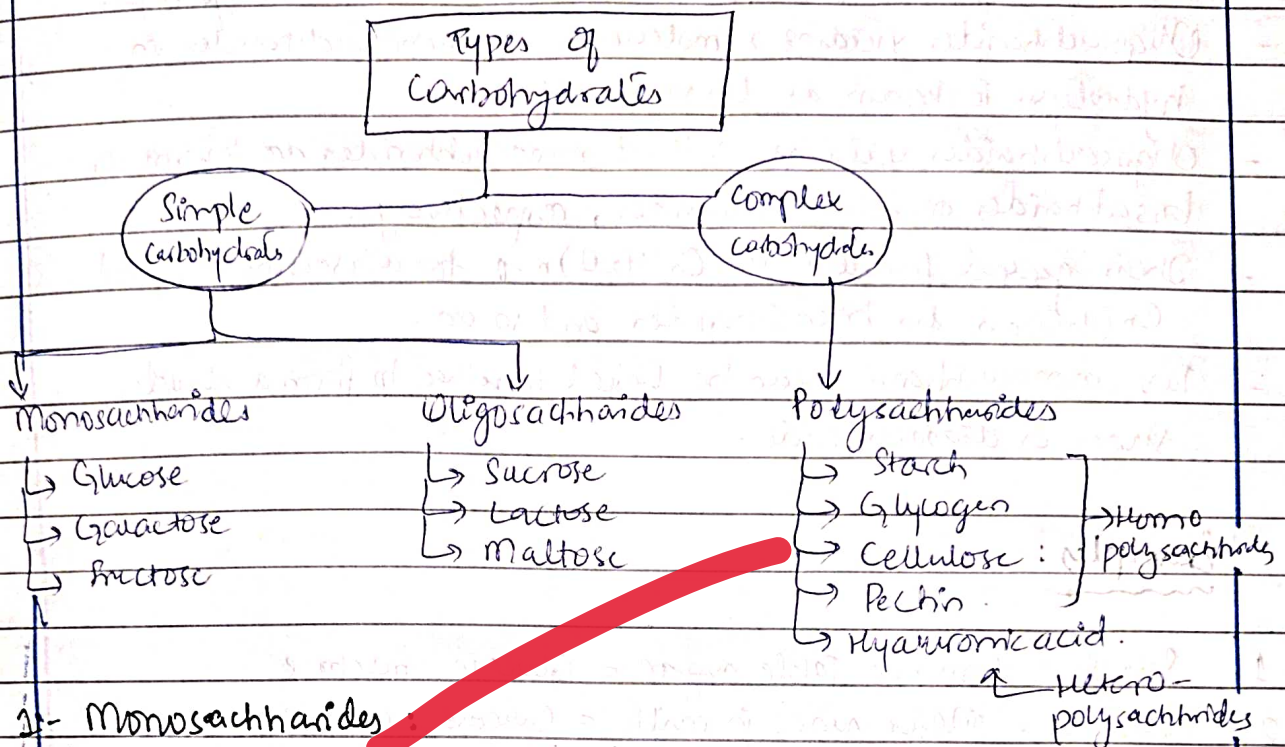 Types Of
Carbohydrates
Simple
Carbohydrates
Complex
carbohydrates
Monosachharides
Oligosachharides
Polysachharides
Glucose
Galactose
Fructose
Sucrose
Lactose
Maltose
Starch
Glycogen
Cellulose :
Pectin .
Hyaluronic acid .
Homo
polysachhrides
Hetero -
polysachhrides
1- Monosachharides :